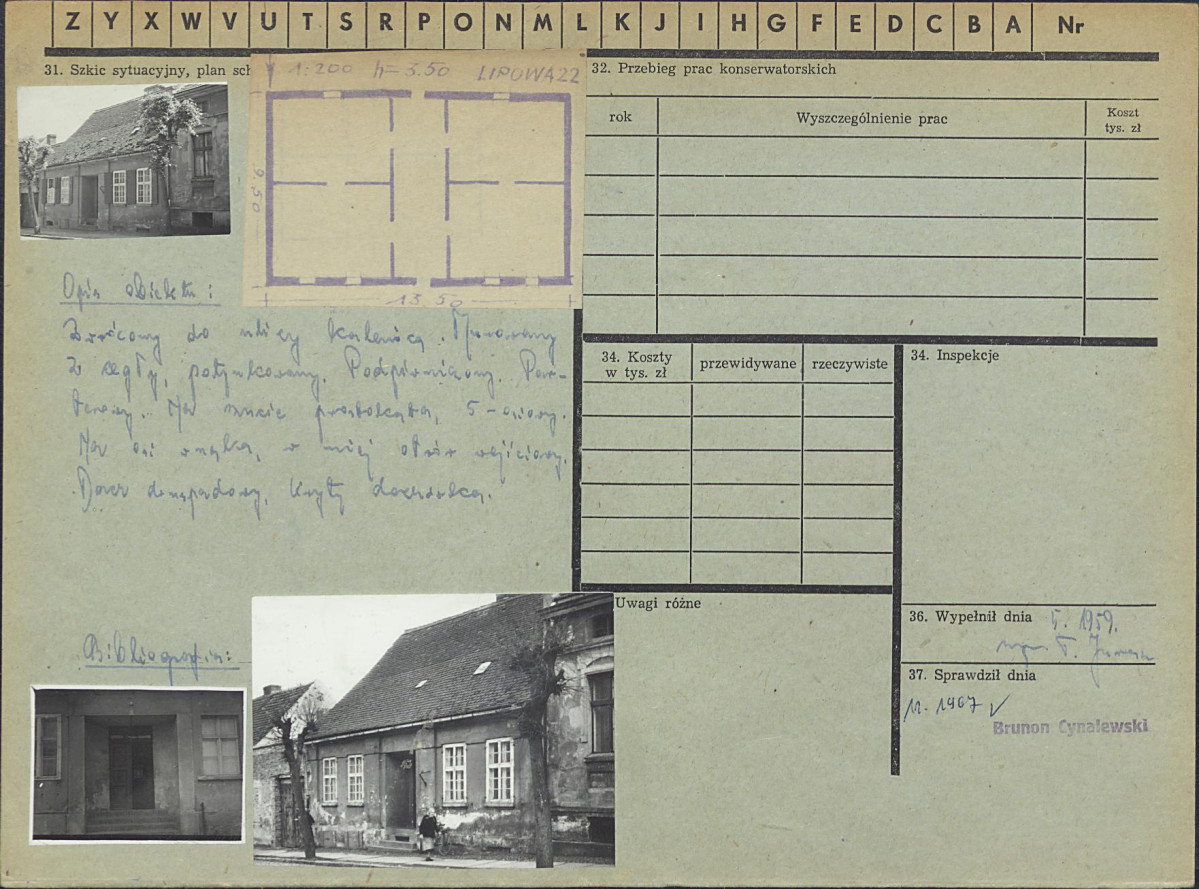 Z Y X W V U T S R P O N M L K J I H G F E D C B A Nr
31. Szkic sytuacyjny, plan sch
1:200 h=3.50 LIPOWA 22
9.50
13.50
Opis obiektu:
Zwrócony do ulicy kalenicą. Murowany
z cegły, potynkowany. Podpiwniczony. Par-
terowy. Na rzucie prostokąta, 5-osiowy.
Na osi wnęka, w niej otwór wejściowy.
Dach dwuspadowy, kryty dachówką.
Bibliografia:
32. Przebieg prac konserwatorskich
rok
Wyszczególnienie prac
Koszt
tys. zł
34. Koszty
w tys. zł
przewidywane
rzeczywiste
34. Inspekcje
Uwagi różne
36. Wypełnił dnia 5. 1959.
mgr T.
37. Sprawdził dnia
11. 1967
Brunon Cynalewski